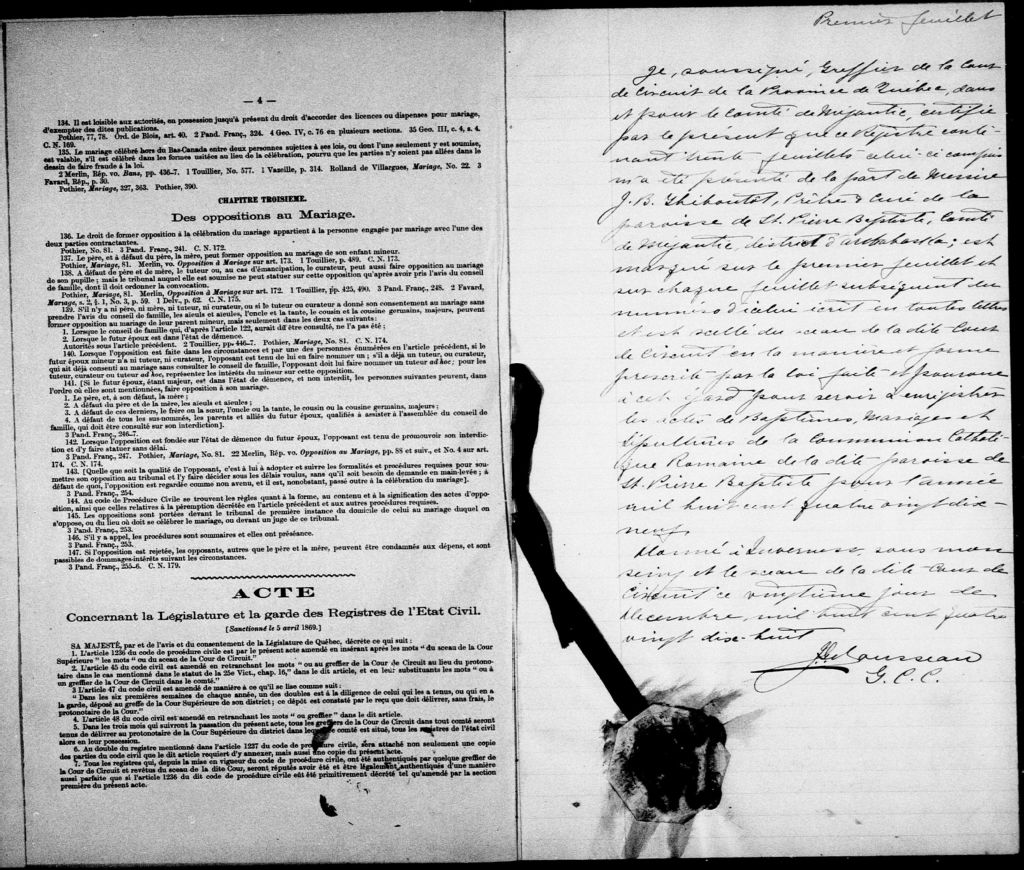 — 4 —
134. Il est loisible aux autorités, en possession jusqu'à présent du droit d'accorder des licences ou dispenses pour mariage,
d'exempter des dites publications.
Pothier, 77, 78. Ord. de Blois, art. 40. 2 Pand. Franç., 324. 4 Geo. IV, c. 76 en plusieurs sections. 35 Geo. III, c. 4, s. 4.
C. N. 169.
135. Le mariage célébré hors du Bas-Canada entre deux personnes sujettes à ses lois, ou dont l'une seulement y est soumise,
est valable, s'il est célébré dans les formes usitées au lieu de la célébration, pourvu que les parties n'y soient pas allées dans le
dessein de faire fraude à la loi.
2 Merlin, Rép. vo. Bans, pp. 436-7. 1 Touillier, No. 577. 1 Vazeille, p. 314. Rolland de Villargues, Mariage, No. 22. 3
Favard, Rép., p. 30.
Pothier, Mariage, 327, 363. Pothier, 390.
CHAPITRE TROISIEME.
Des oppositions au Mariage.
136. Le droit de former opposition à la célébration du mariage appartient à la personne engagée par mariage avec l'une des
deux parties contractantes.
Pothier, No. 81. 3 Pand. Franç., 241. C. N. 172.
137. Le père, et à défaut du père, la mère, peut former opposition au mariage de son enfant mineur.
Pothier, Mariage, 81. Merlin, vo. Opposition à Mariage sur art. 173. 1 Touillier, p. 489. C. N. 173.
138. A défaut de père et de mère, le tuteur ou, au cas d'émancipation, le curateur, peut aussi faire opposition au mariage
de son pupille; mais le tribunal auquel elle est soumise ne peut statuer sur cette opposition qu'après avoir pris l'avis du conseil
de famille, dont il doit ordonner la convocation.
Pothier, Mariage, 81. Merlin, Opposition à Mariage sur art. 172. 1 Touillier, pp. 425, 490. 3 Pand. Franç., 248. 2 Favard,
Mariage, s. 2, § 1, No. 3, p. 59. 1 Delv., p. 62. C. N. 175.
139. S'il n'y a ni père, ni mère, ni tuteur, ni curateur, ou si le tuteur ou curateur a donné son consentement au mariage sans
prendre l'avis du conseil de famille, les aïeuls et aïeules, l'oncle et la tante, le cousin et la cousine germains, majeurs, peuvent
former opposition au mariage de leur parent mineur, mais seulement dans les deux cas suivants:
1. Lorsque le conseil de famille qui, d'après l'article 122, aurait dû être consulté, ne l'a pas été;
2. Lorsque le futur époux est dans l'état de démence.
Autorités sous l'article précédent. 2 Touillier, pp 446-7. Pothier, Mariage, No. 81. C. N. 174.
140. Lorsque l'opposition est faite dans les circonstances et par une des personnes énumérées en l'article précédent, si le
futur époux mineur n'a ni tuteur, ni curateur, l'opposant est tenu de lui en faire nommer un; s'il a déjà un tuteur, ou curateur,
qui ait déjà consenti au mariage sans consulter le conseil de famille, l'opposant doit lui faire nommer un tuteur ad hoc; pour les
tuteur, curateur ou tuteur ad hoc, représenter les intérêts du mineur sur cette opposition.
141. [Si le futur époux, étant majeur, est dans l'état de démence, et non interdit, les personnes suivantes peuvent, dans
l'ordre où elles sont mentionnées, faire opposition à son mariage.
1. Le père, et, à son défaut, la mère;
2. A défaut du père et de la mère, les aïeuls et aïeules;
3. A défaut de ces derniers, le frère ou la sœur, l'oncle ou la tante, le cousin ou la cousine germains, majeurs;
4. A défaut de tous les sus-nommés, les parents et alliés du futur époux, qualifiés à assister à l'assemblée du conseil de
famille, qui doit être consulté sur son interdiction].
3 Pand. Franç., 246-7.
142. Lorsque l'opposition est fondée sur l'état de démence du futur époux, l'opposant est tenu de promouvoir son interdic-
tion et d'y faire statuer sans délai.
3 Pand. Franç., 247. Pothier, Mariage, No. 81. 22 Merlin, Rép. vo. Opposition au Mariage, pp 88 et suiv., et No. 4 sur art.
174. C. N. 174.
143. [Quelle que soit la qualité de l'opposant, c'est à lui à adopter et suivre les formalités et procédures requises pour sou-
mettre son opposition au tribunal et l'y faire décider sous les délais voulus, sans qu'il soit besoin de demande en main-levée; à
défaut de quoi, l'opposition est regardée comme non avenu, et il est, nonobstant, passé outre à la célébration du mariage].
3 Pand. Franç., 254.
144. Au code de Procédure Civile se trouvent les règles quant à la forme, au contenu et à la signification des actes d'oppo-
sition, ainsi que celles relatives à la péremption décrétée en l'article précédent et aux autres procédures requises.
145. Les oppositions sont portées devant le tribunal de première instance du domicile de celui au mariage duquel on
s'oppose, ou du lieu où doit se célébrer le mariage, ou devant un juge de ce tribunal.
3 Pand. Franç., 253.
146. S'il y a appel, les procédures sont sommaires et elles ont préséance.
3 Pand. Franç., 253.
147. Si l'opposition est rejetée, les opposants, autres que le père et la mère, peuvent être condamnés aux dépens, et sont
passibles de dommages-intérêts suivant les circonstances.
3 Pand. Franç., 255-6. C. N. 179.
ACTE
Concernant la Législature et la garde des Registres de l'Etat Civil.
[Sanctionné le 5 avril 1869.]
SA MAJESTÉ, par et de l'avis et du consentement de la Législature de Québec, décrète ce qui suit:
1. L'article 1236 du code de procédure civile est par le présent acte amendé en insérant après les mots "du sceau de la Cour
Supérieure" les mots "ou du sceau de la Cour de Circuit."
2. L'article 45 du code civil est amendé en retranchant les mots "ou au greffier de la Cour de Circuit au lieu du protono-
taire dans le cas mentionné dans le statut de la 25e Vict., chap. 16," dans le dit article, et en leur substituant les mots "ou à
un greffier de la Cour de Circuit dans le comté."
3 L'article 47 du code civil est amendé de manière à ce qu'il se lise comme suit:
"Dans les six premières semaines de chaque année, un des doubles est à la diligence de celui qui les a tenus, ou qui en a
la garde, déposé au greffe de la Cour Supérieure de son district; ce dépôt est constaté par le reçu que doit délivrer, sans frais, le
protonotaire de la Cour."
4. L'article 48 du code civil est amendé en retranchant les mots "ou greffier" dans le dit article.
5. Dans les trois mois qui suivront la passation du présent acte, tous les greffiers de la Cour de Circuit dans tout comté seront
tenus de délivrer au protonotaire de la Cour Supérieure du district dans lequel le comté est situé, tous les registres de l'état civil
alors en leur possession.
6. Au double du registre mentionné dans l'article 1237 du code de procédure civile, sera attaché non seulement une copie
des parties du code civil que le dit article requiert d'y annexer, mais aussi une copie du présent acte.
7. Tous les registres qui, depuis la mise en vigueur du code de procédure civile, ont été authentiqués par quelque greffier de
la Cour de Circuit et revêtus du sceau de la dite Cour, seront réputés avoir été et être légalement authentiqués d'une manière
aussi parfaite que si l'article 1236 du dit code de procédure civile eût été primitivement décrété tel qu'amendé par la section
première du présent acte.
Premier feuillet
Je, soussigné, Greffier de la Cour
de Circuit de la Province de Québec, dans
et pour le Comté de Mégantic certifie
par le présent que ce Registre conte-
nant trente feuillets celui-ci compris
m'a été présenté de la part de Messire
J. B. Thiboutot, Prêtre & Curé de la
paroisse de St. Pierre Baptiste, Comté
de Mégantic, district d'Arthabaska; est
marqué sur le premier feuillet et
sur chaque feuillet subséquent du
numéro d'icelui écrit en toutes lettres
et est scellé du sceau de la dite Cour
de Circuit en la manière & forme
prescrite par la loi faite et pourvue
à cet égard pour servir à enregistrer
les actes de Baptêmes, Mariages et
Sépultures de la Communion Catholi-
que Romaine de la dite paroisse de
St. Pierre Baptiste pour l'année
mil huit cent quatre vingt dix-
neuf.
Donné à Inverness, sous mon
seing et le sceau de la dite Cour de
Circuit ce vingtième jour de
décembre, mil huit cent quatre
vingt dix-huit
Rousseau
G. C. C.